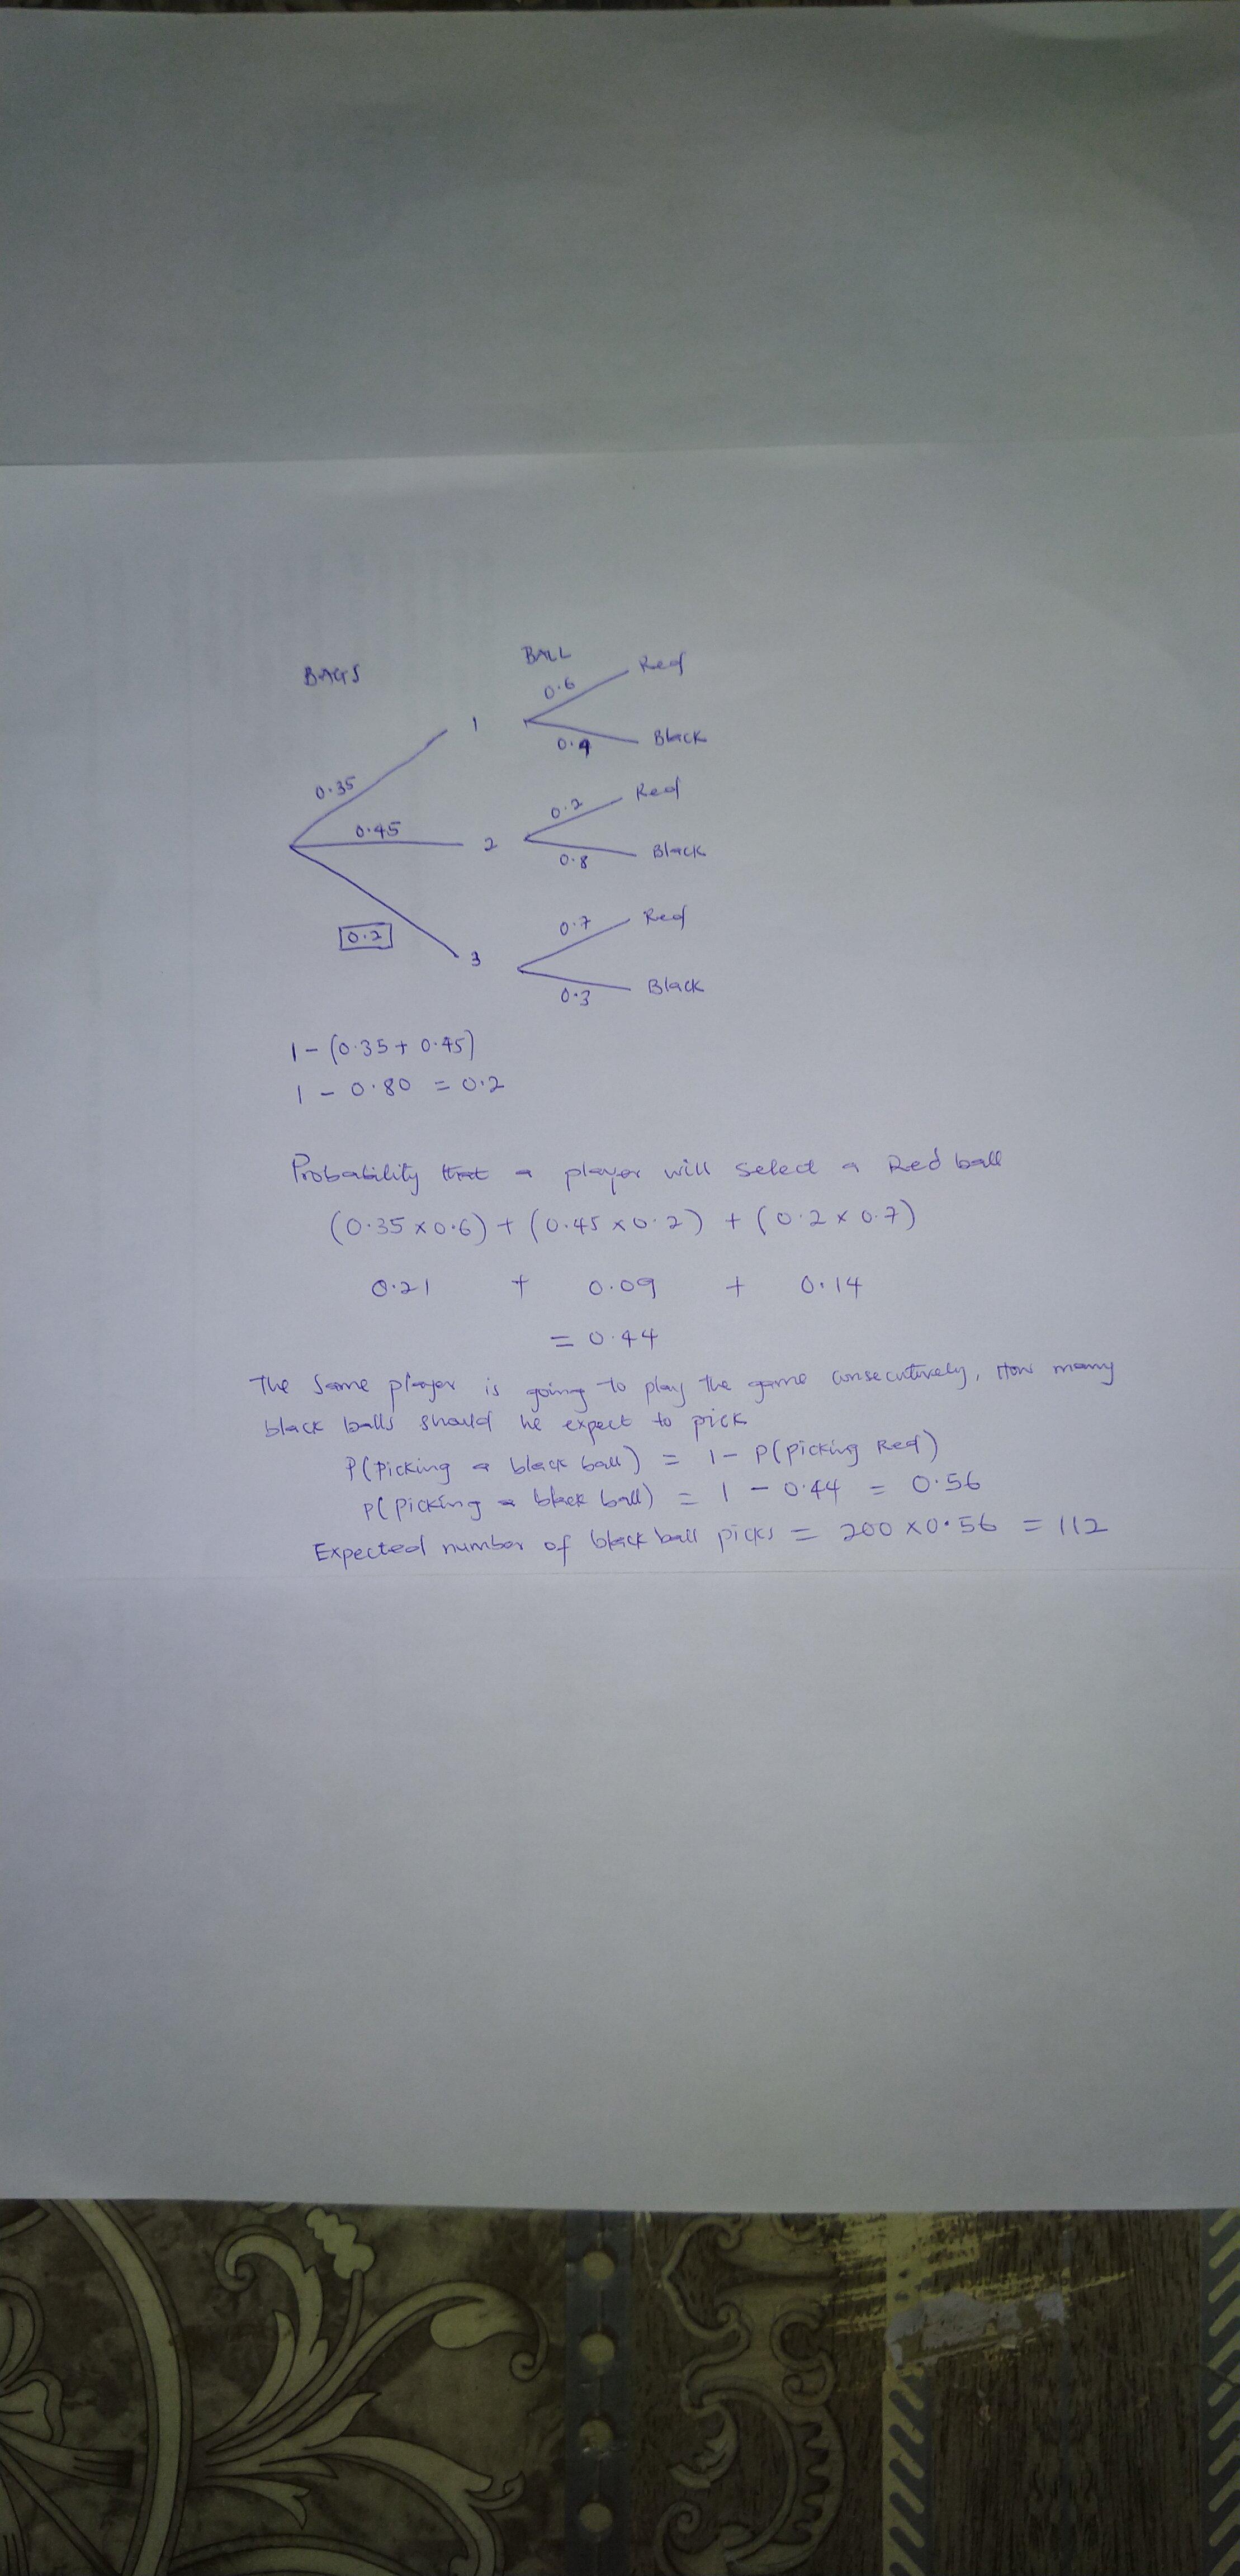 BAGS
BALL
0.35
1
0.6
Red
0.4
Black
0.45
2
0.2
Red
0.8
Black
0.2
3
0.7
Red
0.3
Black
1 - (0.35 + 0.45)
1 - 0.80 = 0.2
Probability that a player will select a Red ball
(0.35 x 0.6) + (0.45 x 0.2) + (0.2 x 0.7)
0.21 + 0.09 + 0.14
= 0.44
The same player is going to play the game consecutively, How many
black balls should he expect to pick
P(Picking a black ball) = 1 - P(picking Red)
P(picking a black ball) = 1 - 0.44 = 0.56
Expected number of black ball picks = 200 x 0.56 = 112